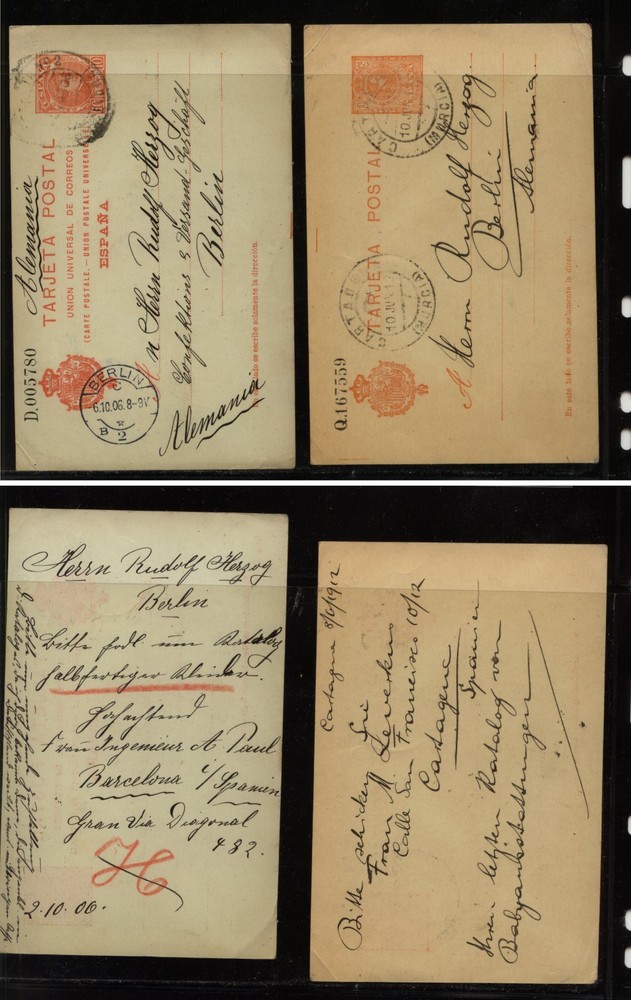 TARJETA POSTAL
UNION UNIVERSAL DE CORREOS
(CARTE POSTALE.—UNION POSTALE UNIVERSELLE)
ESPAÑA
Alemania
An Herrn Rudolf Herzog
Confektions & Versand-Geschäft
Berlin
Alemania
En este lado se escribe solamente la dirección.
D.005780
BERLIN
C
6.10.06.8-9V
B 2
TARJETA POSTAL
10 JUN 12
(MURCIA)
CARTAGENA
10 JUN 12
(MURCIA)
A Herrn Rudolf Herzog
Berlin
Alemania
En este lado se escribe solamente la dirección.
Q.167559
Herrn Rudolf Herzog
Berlin
Bitte höfl um Katalog
halbfertiger Kleider.
Hochachtend
Frau Ingenieur A Paul
Barcelona i/Spanien
Gran Via Diagonal
432.
H
2.10.06.
Cartagena 8/6/1912
Bitte schicken Sie
Frau M Leverkus
Calle San Francisco 10/12
Cartagena
Spanien
Ihren letzten Katalog von
Babyausstattungen